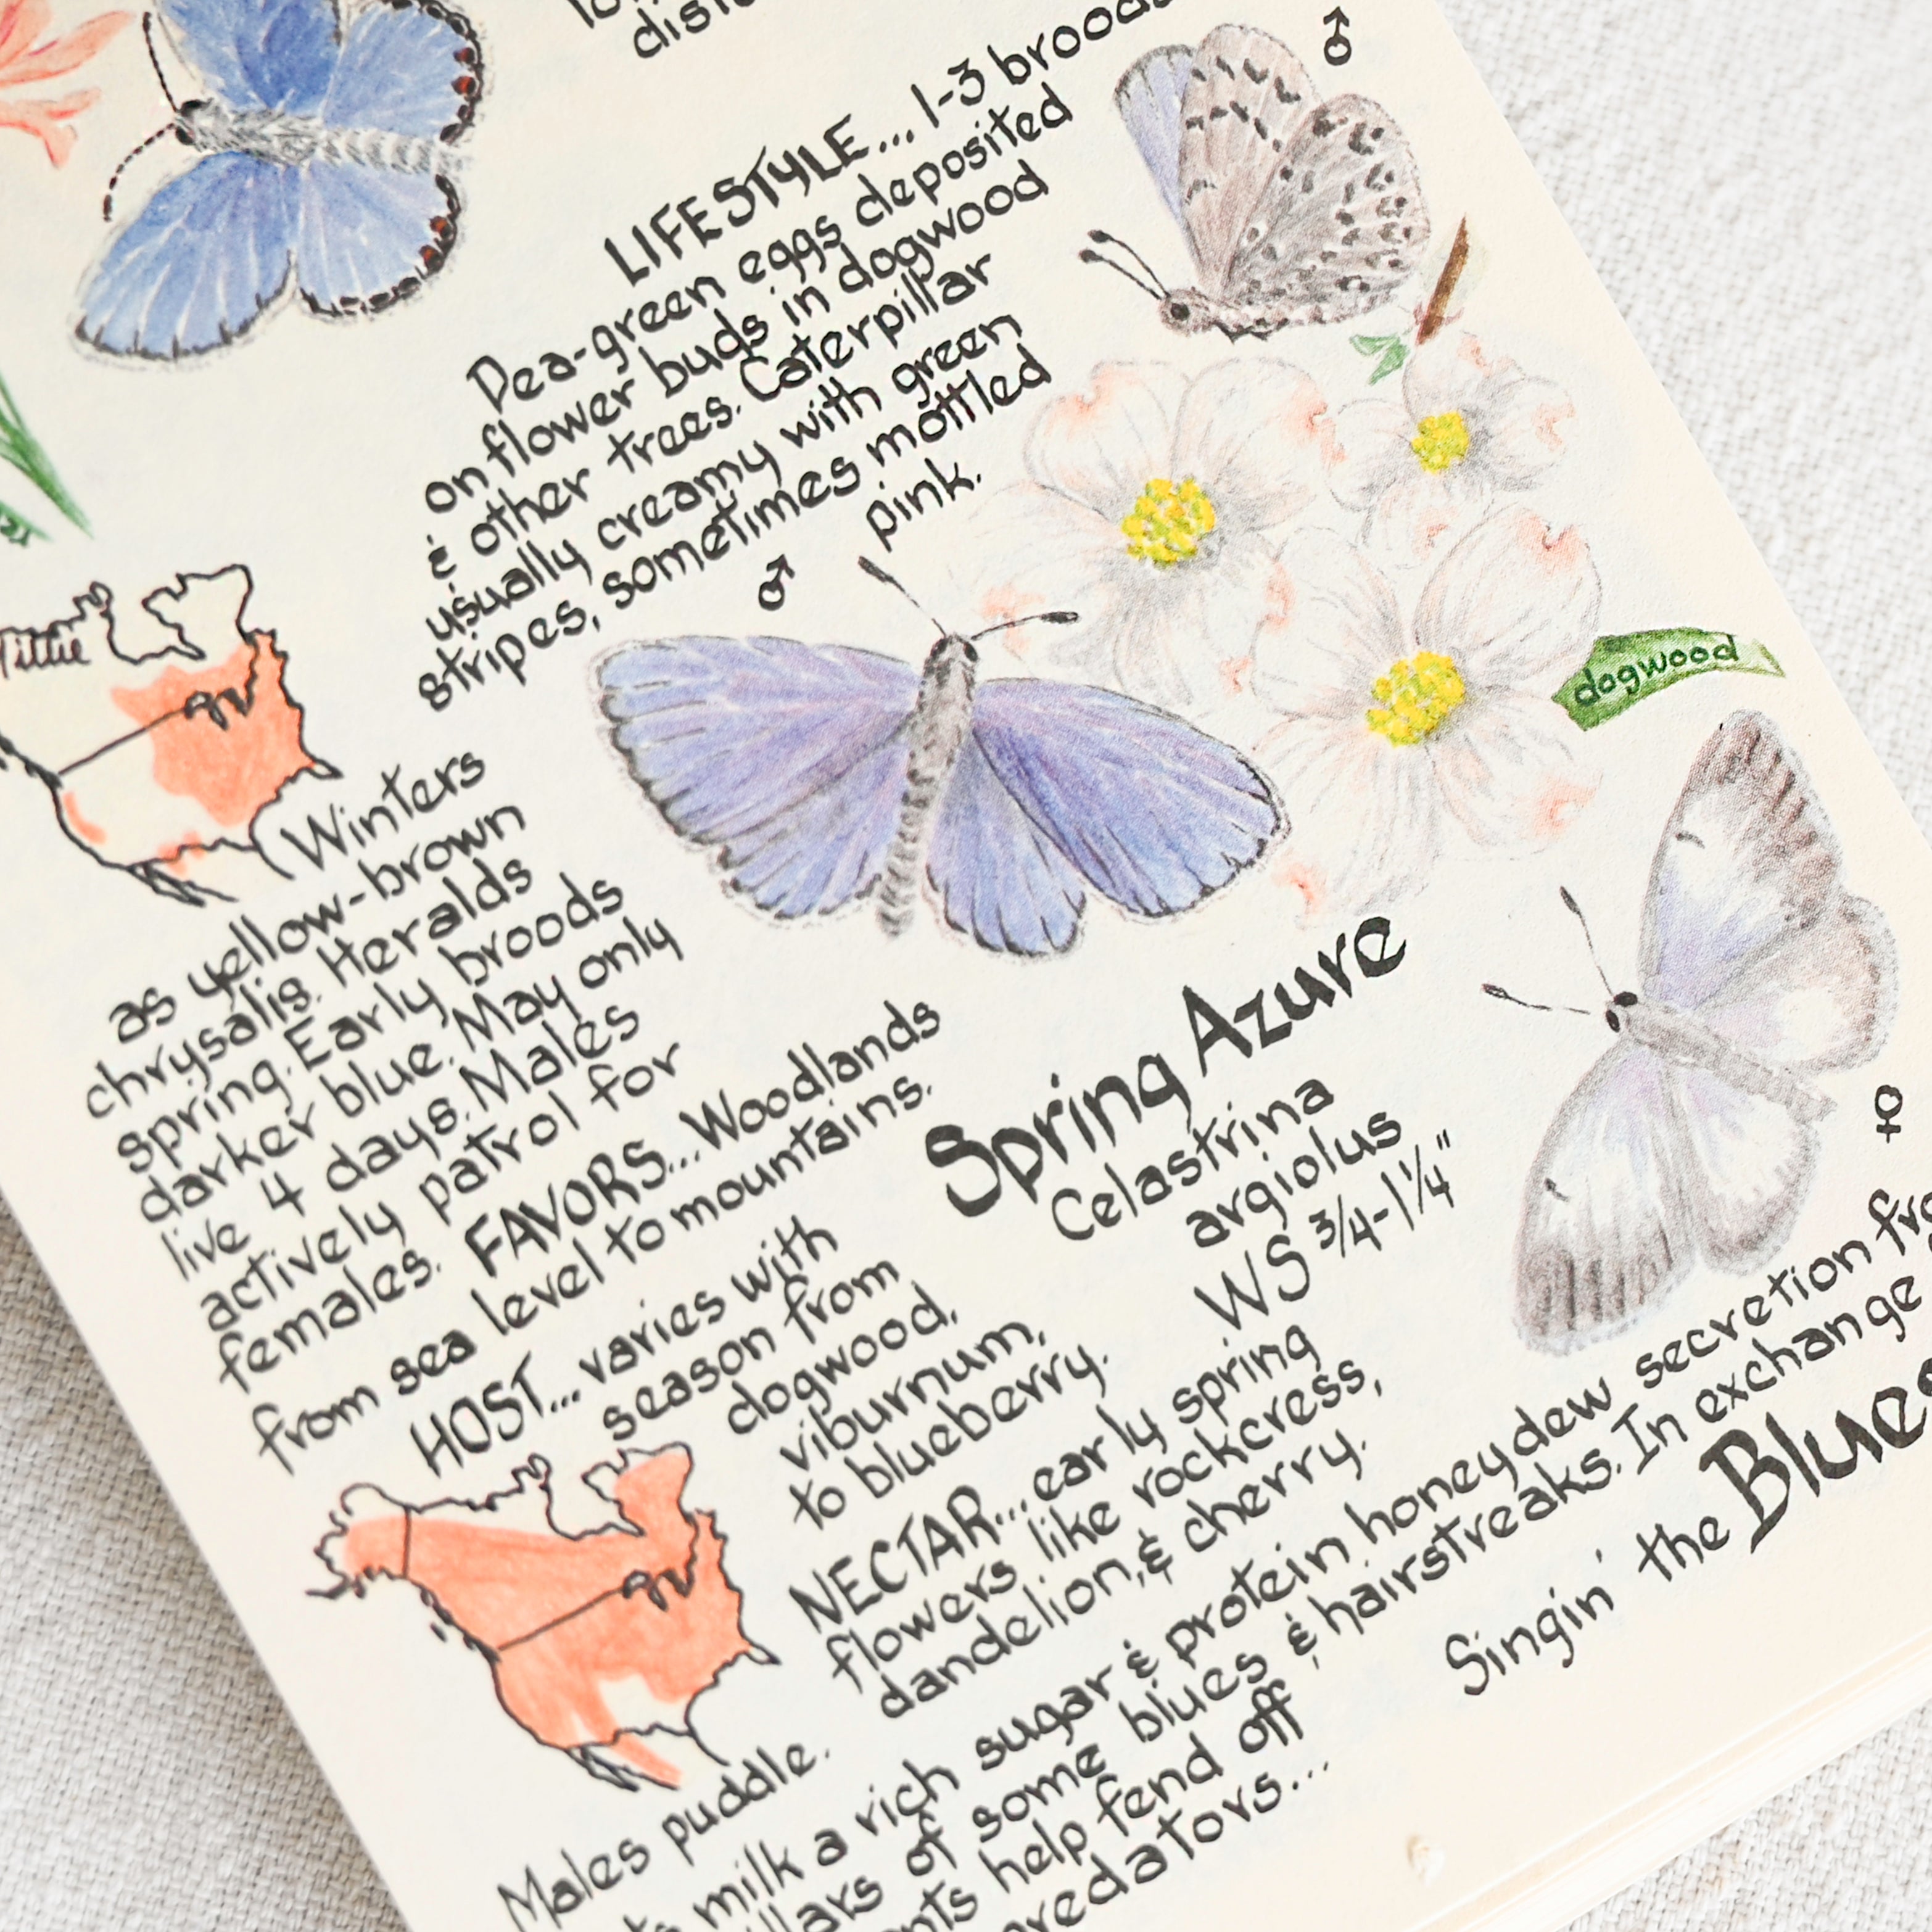 LIFESTYLE... 1-3 broods
Pea-green eggs deposited
on flower buds in dogwood
& other trees. Caterpillar
usually creamy with green
stripes, sometimes mottled
pink.
♂
♂
dogwood
Winters
as yellow-brown
chrysalis. Heralds
spring. Early broods
darker blue. May only
live 4 days. Males
actively patrol for
females. FAVORS... Woodlands
from sea level to mountains.
Spring Azure
Celastrina
argiolus
WS 3/4-1 1/4"
♀
HOST... varies with
season from
dogwood,
viburnum,
to blueberry.
NECTAR... early spring
flowers like rockcress,
dandelion, & cherry.
Males puddle.
milk a rich sugar & protein honeydew secretion
of some blues & hairstreaks. In exchange
help fend off
Singin' the Blues